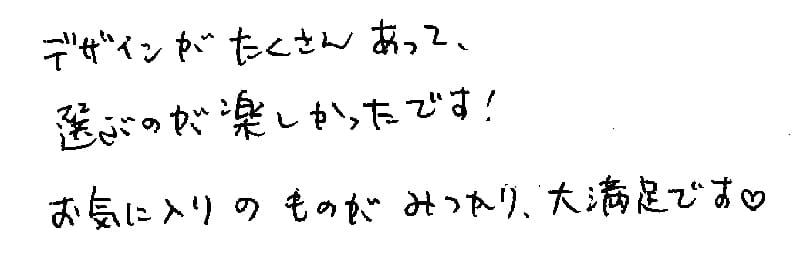 デザインがたくさんあって、
選ぶのが楽しかったです!
お気に入りのものがみつかり、大満足です♡